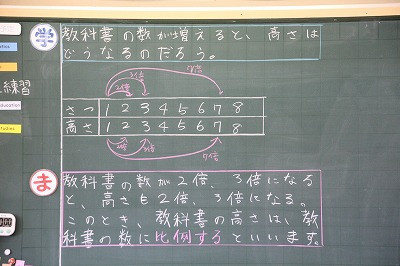 学
教科書の数が増えると、高さは
どうなるのだろう。
3倍
7倍
2倍
さつ 1 2 3 4 5 6 7 8
高さ 1 2 3 4 5 6 7 8
2倍
3倍
7倍
ま
教科書の数が2倍、3倍になる
と、高さも2倍、3倍になる。
このとき、教科書の高さは、教
科書の数に比例するといいます。
練習